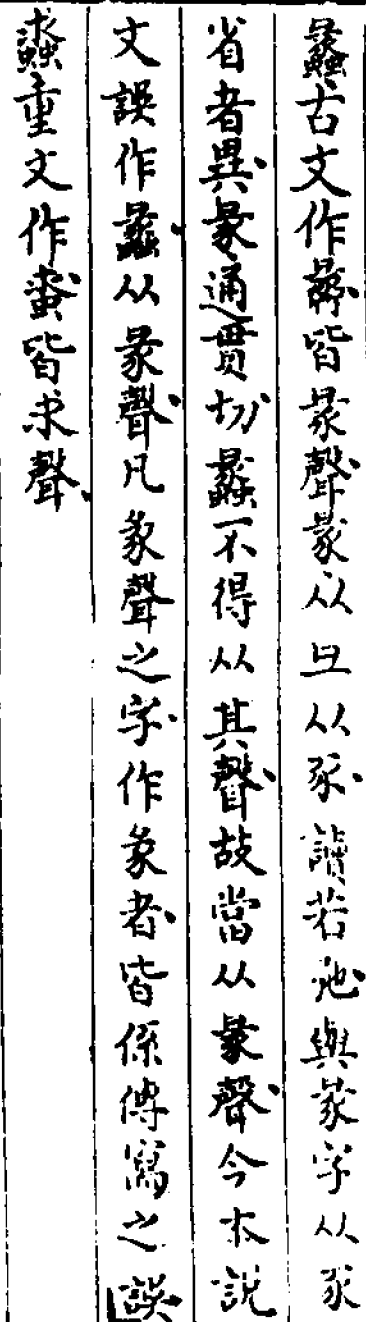 蠡古文作𧕯皆彖聲彖从彑从豕讀若弛與彖字从豕
省者異彖通貫切蠡不得从其聲故當从彖聲今本說
文誤作蠡从彖聲凡彖聲之字作彖者皆係傳寫之誤
蟊重文作蛷皆求聲